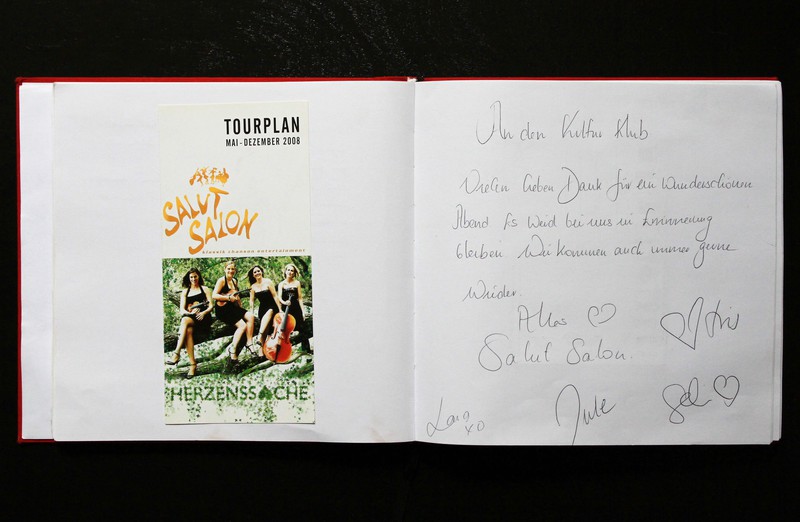 TOURPLAN
MAI - DEZEMBER 2008
SALUT
SALON
klassik chanson entertainment
HERZENSSACHE
An den Kultur Klub
Vielen lieben Dank für ein Wunderschönen
Abend Es Wird bei uns in Erinnerung
bleiben Wir kommen auch immer gerne
Wieder.
Alles
Salut Salon.
Iris
Lara
xo
Jule